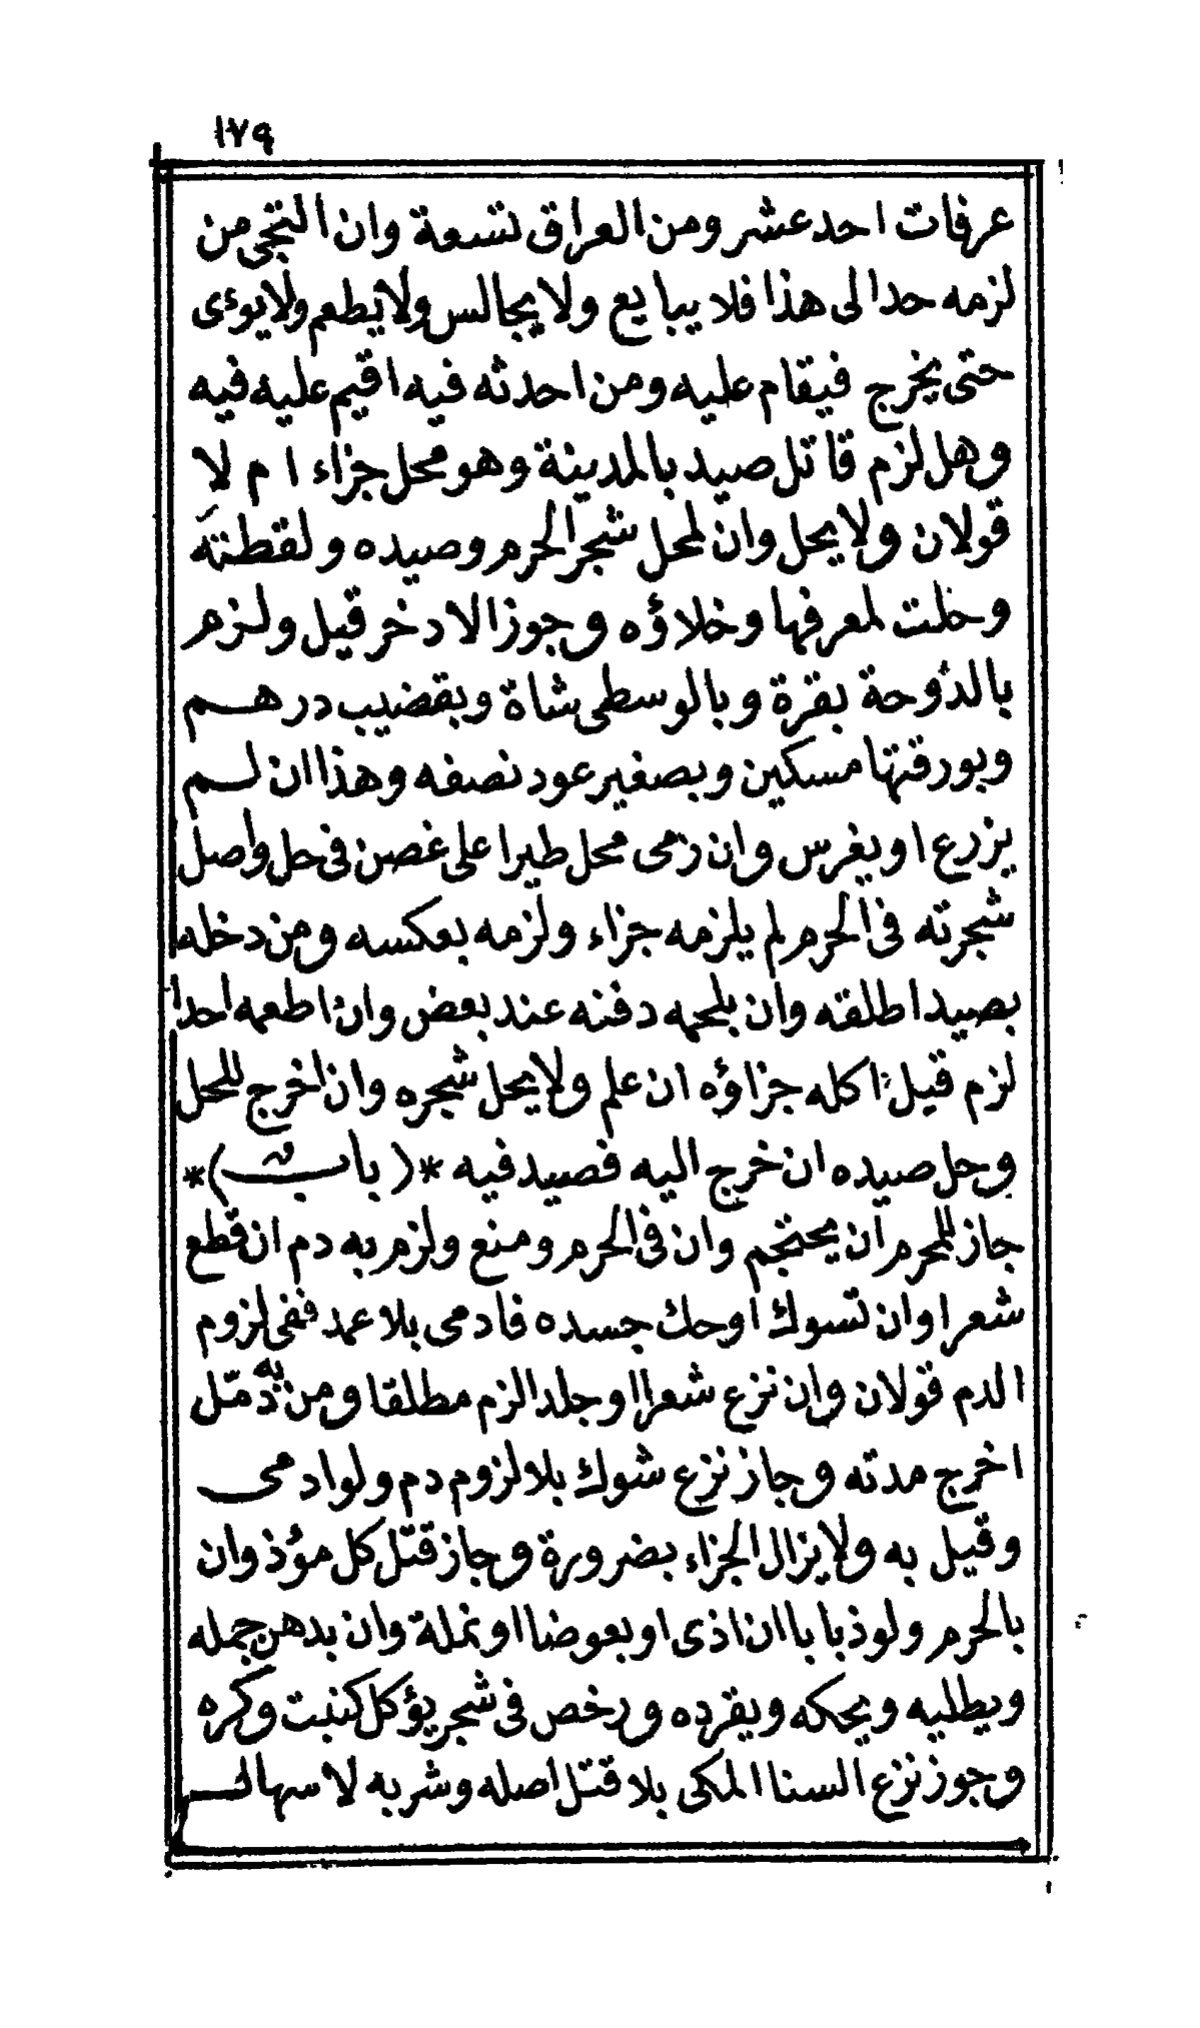 ١٧٩
عرفات احد عشر ومن العراق تسعة وان التجى من
لزمه حد الى هذا فلا يبايع ولا يجالس ولا يطعم ولا يوءى
حتى يخرج فيقام عليه ومن احدثه فيه اقيم عليه فيه
وهل لزم قاتل صيد بالمدينة وهو محل جزاء ام لا
قولان ولا يحل وان لمحل شجر الحرم وصيده ولقطته
وحلت لمعرفها وخلاؤه وجوز الادخر قيل ولزم
بالدوحة بقرة وبالوسطى شاة وبقضيب درهم
وبورقتها مسكين وبصغير عود نصفه وهذا ان لم
يزرع او يغرس وان رمى محل طيرا على غصن فى حل واصل
شجرته فى الحرم لم يلزمه جزاء ولزمه بعكسه ومن دخله
بصيد اطلقه وان بلحمه دفنه عند بعض وان اطعمه احدا
لزم قيل اكله جزاؤه ان علم ولا يحل شجره وان اخرج للحل
وحل صيده ان خرج اليه فصيد فيه *( باب )*
جاز للمحرم ان يحتجم وان فى الحرم ومنع ولزم به دم ان قطع
شعرا وان تسوك او حك جسده فادمى بلا عمد ففى لزوم
الدم قولان وان نزع شعرا او جلدا لزم مطلقا ومن به دمّل
اخرج مدته وجاز نزع شوك بلا لزوم دم ولو ادمى
وقيل به ولا يزال الجزاء بضرورة وجاز قتل كل مؤذ وان
بالحرم ولو ذبابا ان اذى او بعوضا او نملة وان يدهن جمله
ويطليه ويحكه ويقرده ورخص فى شجر يؤكل كنبت وكره
وجوز نزع السنا المكى بلا قتل اصله وشربه لاسهال